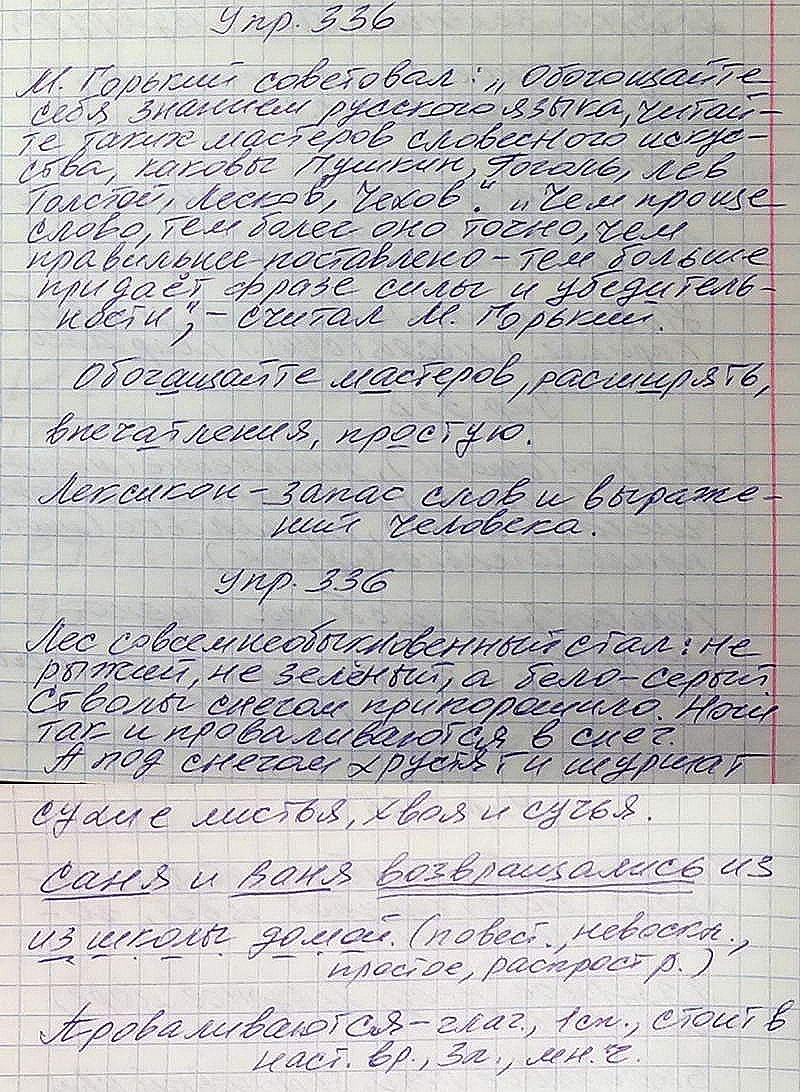 Упр. 336
М. Горький советовал: „Обогощайте
себя знанием русского языка, читай-
те таких мастеров словесного искус-
ства, каковы Пушкин, Гоголь, Лев
Толстой, Лесков, Чехов". „Чем проще
слово, тем более оно точно, чем
правильнее поставлено – тем больше
придаёт фразе силы и убедитель-
ности", – считал М. Горький.
Обогащайте мастеров, расширять,
впечатления, простую.
Лексикон – запас слов и выраже-
ний человека.
Упр. 336
Лес совсем необыкновенный стал: не
рыжий, не зелёный, а бело-серый
Стволы снегом припорошило. Ноги
так и проваливаются в снег.
А под снегом хрустят и шуршат
сухие листья, хвоя и сучья.
Саня и Ваня возвращались из
из школы домой. (повест., невоскл.,
простое, распростр.)
Проваливаются – глаг., 1 сп., стоит в
наст. вр., 3 л., мн. ч.